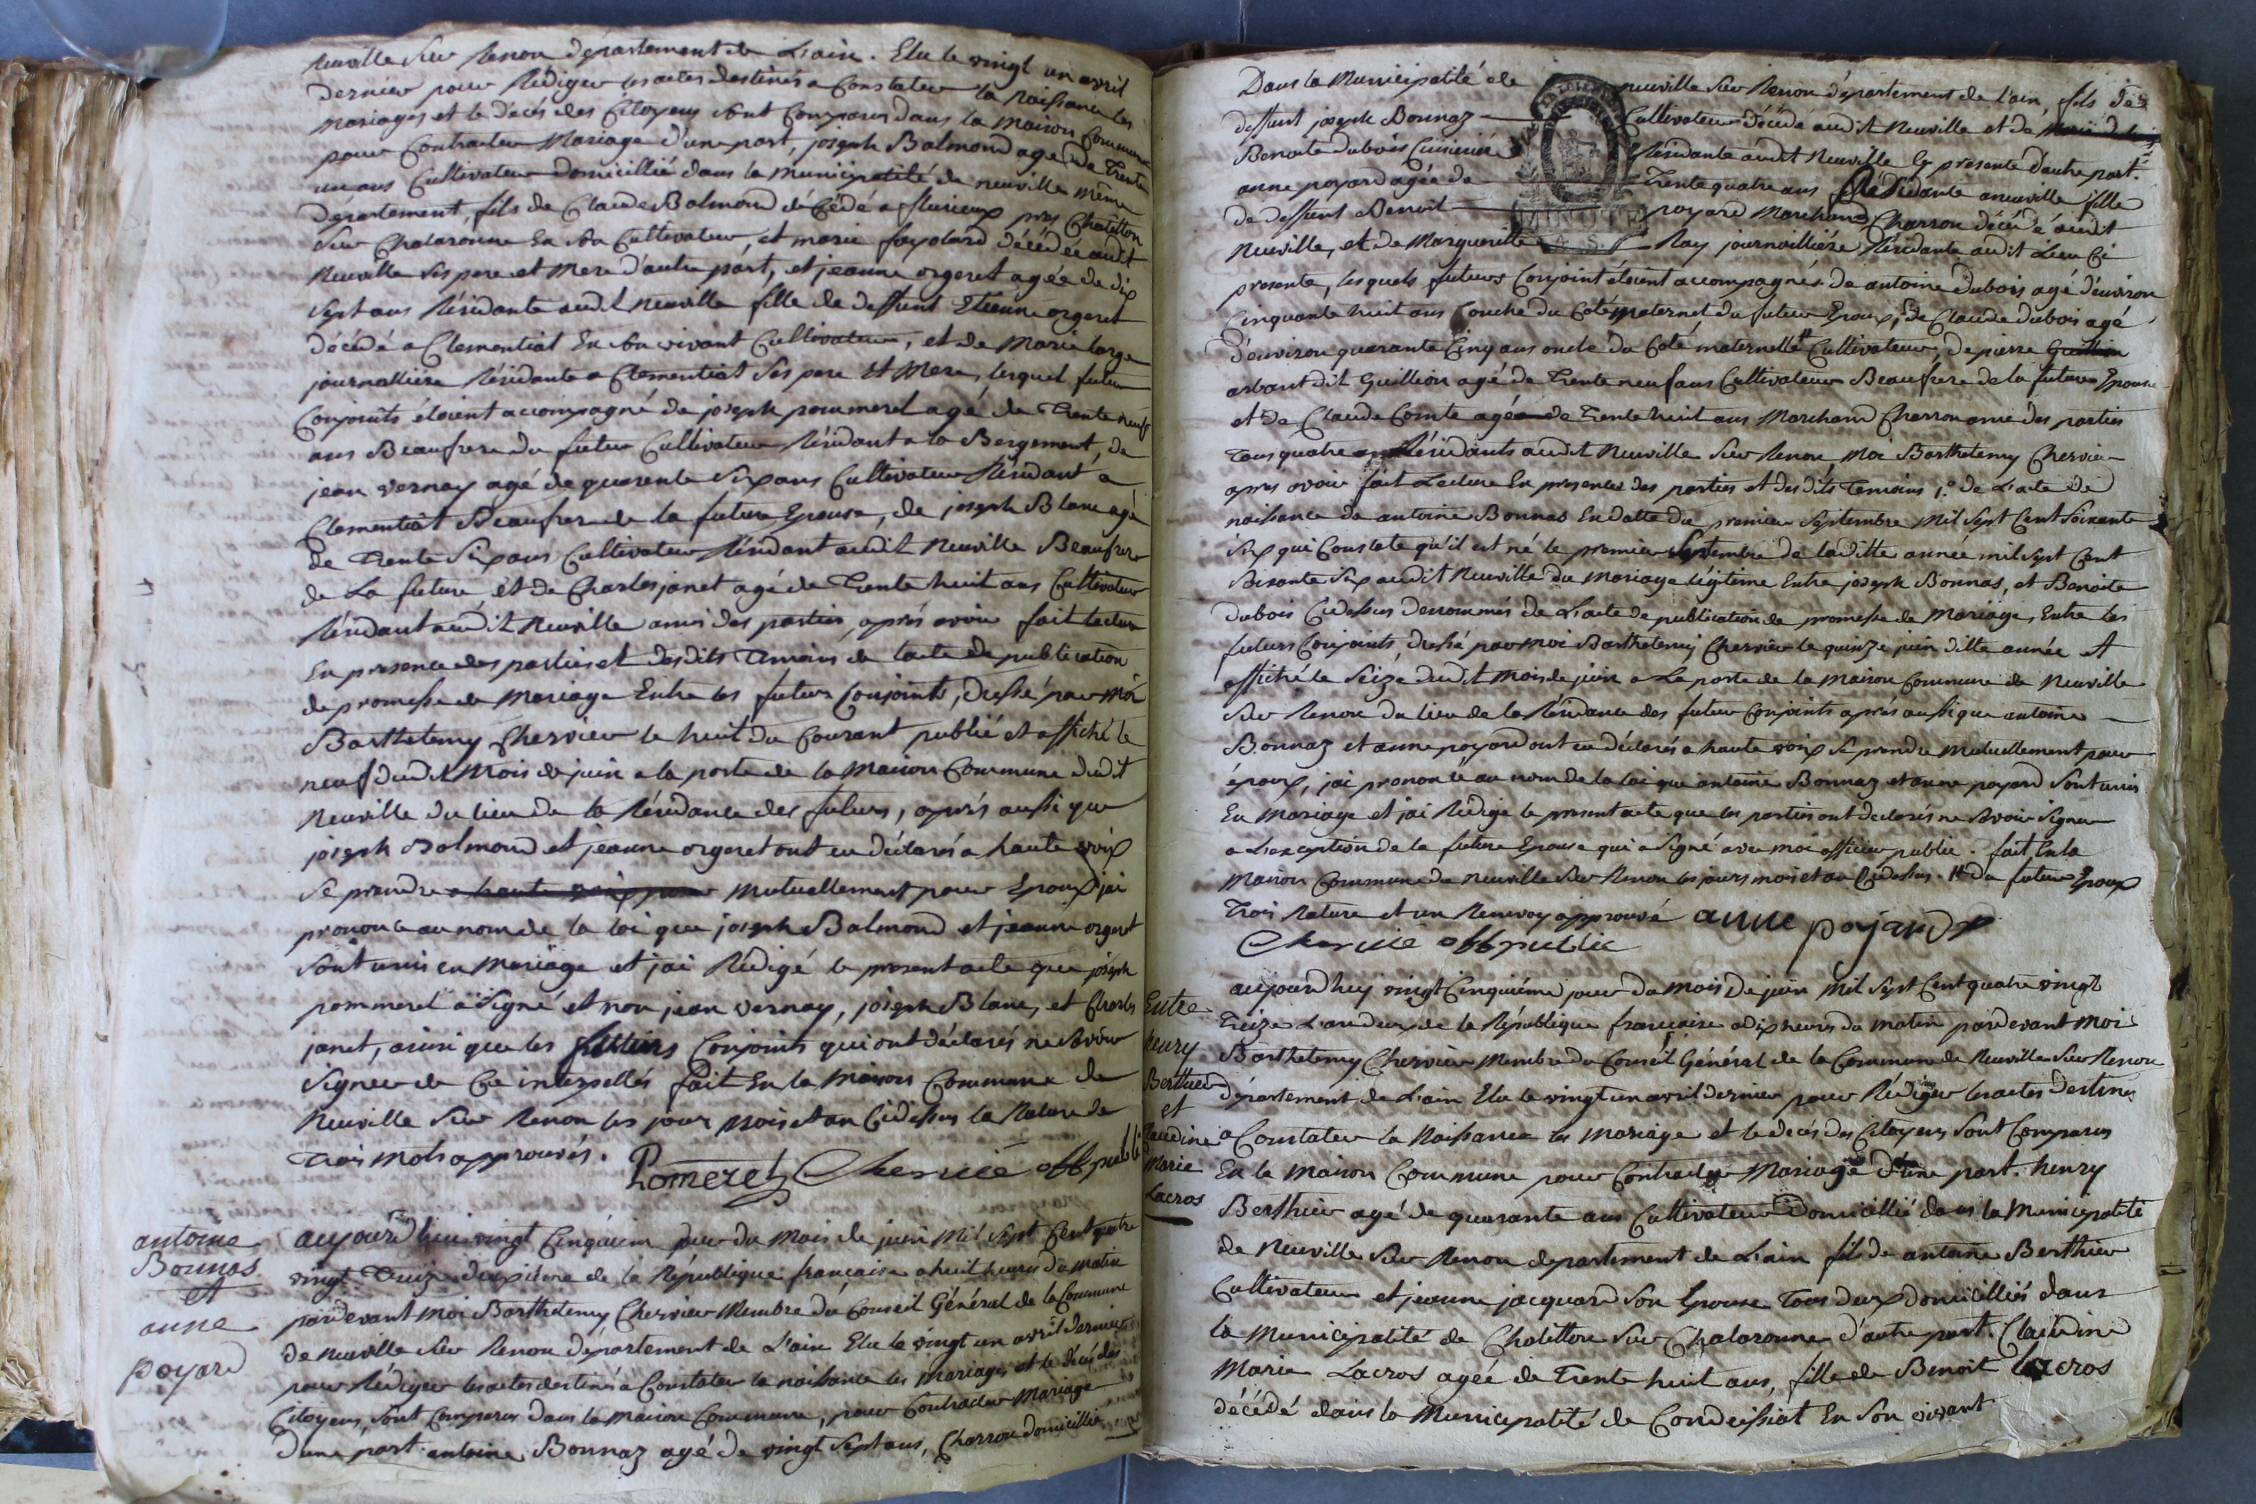 neuville Sur Renon département de L'ain. Elu le vingt un avril
dernier pour Rédiger les actes destinés a Constater la Naissance les
Mariages et le décès des Citoyens Sont Comparus dans la Maison Commune
pour Contracter Mariage d'une part, joseph Balmond agé de Trente
un ans Cultivateur domicillié dans la Municipalité de neuville même
département, fils de Claude Balmond décédé a flurieux près Châtillon
Sur Chalaronne En Son Cultivateur, et marie fayolard décédée audit
Neuville Ses pere et Mere d'autre part, et jeanne orgeret agée de dix
Sept ans Résidante audit Neuville fille de deffunt Etienne orgeret
décédé a Clementiat En Son vivant Cultivateur, et de Marie large
journalliere Résidante a Clementiat Ses pere Et Mere, lesquel futur
Conjoints étoient accompagné de joseph pommerel agé de Trente neuf
ans Beaufrere du futur Cultivateur Résidant a la Bergement, de
jean vernay agé de quarente Six ans Cultivateur Résidant a
Clementiat Beaufrere de la future Epouse, de joseph Blanc agé
de Trente Six ans Cultivateur Résidant audit Neuville Beaufrere
de La future et de Charles janet agé de Trente huit ans Cultivateur
Résidant audit Neuville amis des parties, après avoir fait lecture
En presence des parties et desdits Temoins de l'acte de publication
de promesse de Mariage Entre les futurs Conjoints, dressé par Moi
Barthelemy Chervier le huit du Courant publié et affiché le
neuf dudit Mois de juin a la porte de la Maison Commune dudit
Neuville du lieu de la Résidance des futurs, après aussi que
joseph Balmond et jeanne orgeret ont eu déclarés a haute voix
Se prendre a haute voix pour Mutuellement pour Epoux j'ai
prononcé au nom de la loi que joseph Balmond et jeanne orgeret
Sont unis en Mariage et j'ai Rédigé le present acte que joseph
pommerel a Signé et non jean vernay, joseph Blanc, et Charles
janet, ainsi que les futurs Conjoints qui ont déclarés ne Savoir
Signer de Ce interpellés fait En la Maison Commune de
Neuville Sur Renon les jour Mois et an Cidessus la Rature de
Trois Mots approuvés. Pomerel Chervié off publi
antoine
Bonnas
et
anne
poyard
aujourd'hui vingt Cinquiem jour du Mois de juin Mil Sept Cent quatre
vingt Treize deuxième de la République française a huit heures du Matin
pardevant Moi Barthelemy Chervier Membre du Conseil Général de la Commune
de Neuville Sur Renon département de L'ain Elu le vingt un avril dernier
pour Rédiger les actes destinés a Constater la naissance les Mariages et le décès des
Citoyens, Sont Comparus dans la Maison Commune, pour Contracter Mariage
d'une part antoine Bonnaz agé de vingt Sept ans, Charron domicillié
Dans la Municipalité de neuville Sur Renon département de l'ain, fils de
deffunt joseph Bonnaz Cultivateur décédé audit Neuville et de
Benoite dubois Cuisiniere Résidante audit Neuville Cy presente d'autre part.
anne poyard agée de Trente quatre ans Résidante a neuville fille
de deffunt Benoit poyard Marchand Charron décédé audit
Neuville, et de Marguerite Ray journailliére Résidante audit Lieu Ci
MINUTE
4. S.
presente, lesquels futurs Conjoint étoient accompagnés de antoine dubois agé d'environ
Cinquante huit ans Conche du Coté maternel du futur Epoux, de Claude dubois agé
d'environ quarante Cinq ans oncle du Coté maternelle Cultivateur, de pierre Guillion
arbant dit Guillion agé de Trente neuf ans Cultivateur Beaufrere de la future Epouse
et de Claude Comte agée de Trente huit ans Marchand Charron ami des parties
Tous quatre Résidants audit Neuville Sur Renon Moi Barthelemy Chervier
apres avoir fait Lecture En presence des parties et desdits Temoins 1.° de L'acte de
naissance de antoine Bonnas En datte du premier Septembre Mil Sept Cent Soixante
Six qui Constate qu'il est né le premier Septembre de laditte année mil Sept Cent
Soixante Six audit Neuville du Mariage Légitime Entre joseph Bonnas, et Benoite
dubois Cidessus denommés de L'acte de publication de promesse de Mariage Entre les
futurs Conjoints, dressé par Moi Barthelemy Chervier le quinze juin ditte année et
affiché le Seize dudit Mois de juin a La porte de la Maison Commune de Neuville
Sur Renon du lieu de la Résidance des futur Conjoints après aussi que antoine
Bonnaz et anne poyard ont eu déclarés a haute voix Se prendre Mutuellement pour
époux, j'ai prononcé au nom de la Loi que antoine Bonnaz et anne poyard Sont unis
En Mariage et j'ai Rédigé le present acte que les parties ont declarés ne Savoir Signer
a L'exception de la future Epouse qui a Signé avec moi officier public. fait En la
Maison Commune de Neuville Sur Renon les jours mois et an Cidessus. # du futur Epoux
Trois Rature et un Renvoy approuvé anne poyard
Chervié off public
Entre
henry
Berthier
et
Claudine
Marie
Lacros
aujourdhuy vingt Cinquiéme jour du Mois De juin Mil Sept Cent quatre vingt
Treize L'an deux de la République française a dix heures du matin pardevant Moi
Barthelemy Chervier Membre du Conseil Général de la Commune de Neuville Sur Renon
département de L'ain Elu le vingt un avril dernier pour Rédiger les actes destinés
a Constater la Naissance les Mariage et le decés des Citoyens Sont Comparus
En la Maison Commune pour Contracter Mariage d'une part. henry
Berthier agé de quarante ans Cultivateur Domicillié dans la Municipalité
de Neuville Sur Renon département de L'ain fils de antoine Berthier
Cultivateur et jeanne jacquard Son Epouse Tous deux domicilliés dans
la Municipalité de Chatillon Sur Chalaronne d'autre part. Claudine
Marie Lacros agée de Trente huit ans, fille de Benoit Lacros
décédé dans la Municipalité de Condeissiat En Son vivant